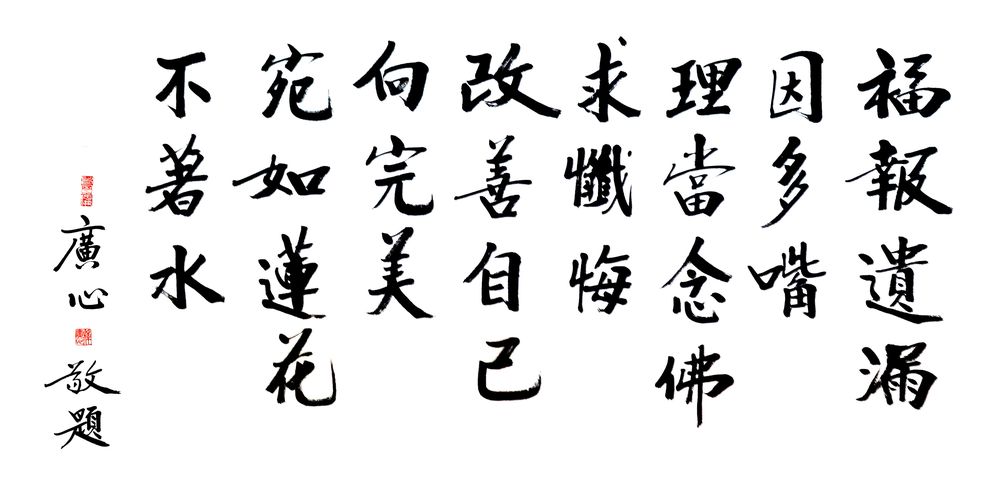 福報遺漏
因多嘴
理當念佛
求懺悔
改善自己
向完美
宛如蓮花
不著水
廣心
敬題